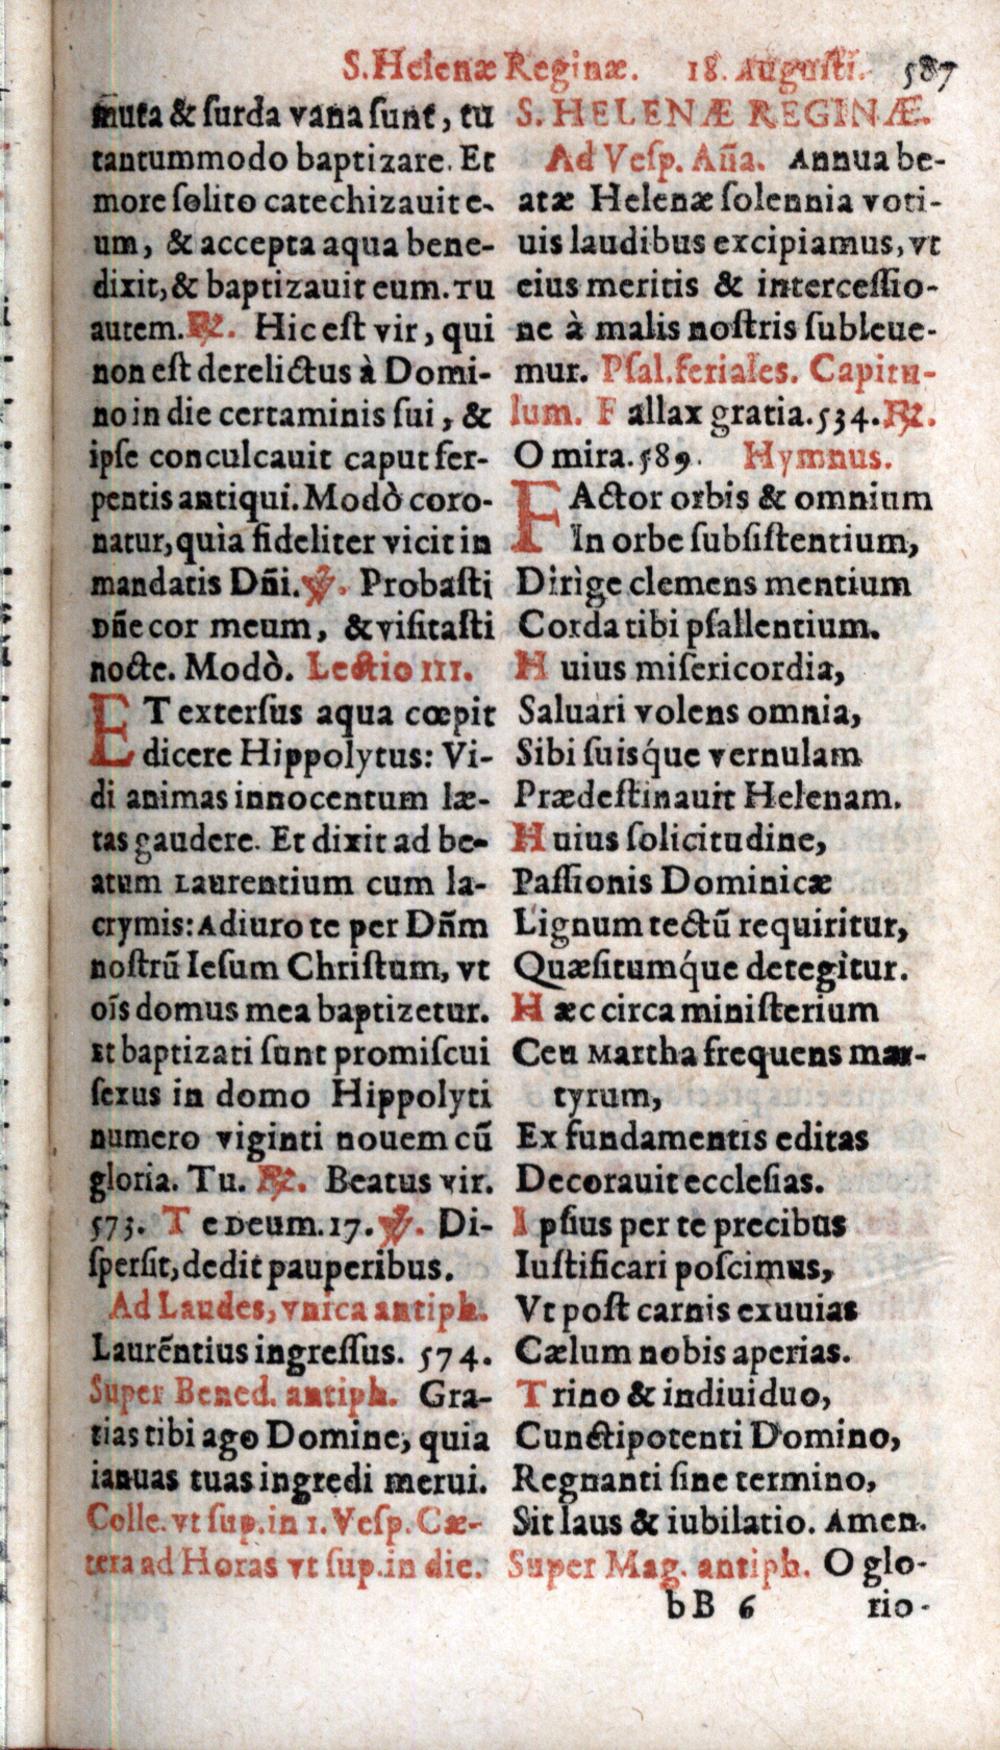 S. Helenæ Reginæ. 18. Augusti. 587
muta & ſurda vana ſunt, tu
tantummodo baptizare. Et
more ſolito catechizauit e-
um, & accepta aqua bene-
dixit, & baptizauit eum. Tu
autem. ℟. Hic eſt vir, qui
non eſt derelictus à Domi-
no in die certaminis ſui, &
ipſe conculcauit caput ſer-
pentis antiqui. Modò coro-
natur, quìa fideliter vicit in
mandatis Dñi. ℣. Probaſti
Dñe cor meum, & viſitaſti
nocte. Modò. Lectio III.
ET exterſus aqua cœpit
dicere Hippolytus: Vi-
di animas innocentum læ-
tas gaudere. Et dixit ad be-
atum Laurentium cum la-
crymis: Adiuro te per Dñm
noſtrũ Ieſum Chriſtum, vt
oīs domus mea baptizetur.
Et baptizati ſunt promiſcui
ſexus in domo Hippolyti
numero viginti nouem cũ
gloria. Tu. ℟. Beatus vir.
573. Te Deum. 17. ℣. Di-
ſperſit, dedit pauperibus.
Ad Laudes, vnica antiph.
Laurẽntius ingreſſus. 574.
Super Bened. antiph. Gra-
tias tibi ago Domine, quia
ianuas tuas ingredi merui.
Colle. vt ſup. in 1. Veſp. Cæ-
tera ad Horas vt ſup. in die.
S. HELENÆ REGINÆ.
Ad Veſp. Aña. Annua be-
atæ Helenæ ſolennia voti-
uis laudibus excipiamus, vt
eius meritis & interceſſio-
ne à malis noſtris ſubleue-
mur. Pſal. feriales. Capitu-
lum. Fallax gratia. 534. ℟.
O mira. 589. Hymnus.
FActor orbis & omnium
In orbe ſubſiſtentium,
Dirìge clemens mentium
Corda tibi pſallentium.
Huius miſericordia,
Saluari volens omnia,
Sibi ſuisq́ue vernulam
Prædeſtinauit Helenam.
Huius ſolicitudine,
Paſſionis Dominicæ
Lignum tectũ requiritur,
Quæſitumq́ue detegitur.
Hæc circa miniſterium
Ceu Martha frequens mar-
tyrum,
Ex fundamentis editas
Decorauit eccleſias.
Ipſius per te precibus
Iuſtificari poſcimus,
Vt poſt carnis exuuias
Cælum nobis aperias.
Trino & indiuiduo,
Cunctipotenti Domino,
Regnanti ſine termino,
Sit laus & iubilatio. Amen.
Super Mag. antiph. O glo-
bB 6 rio-